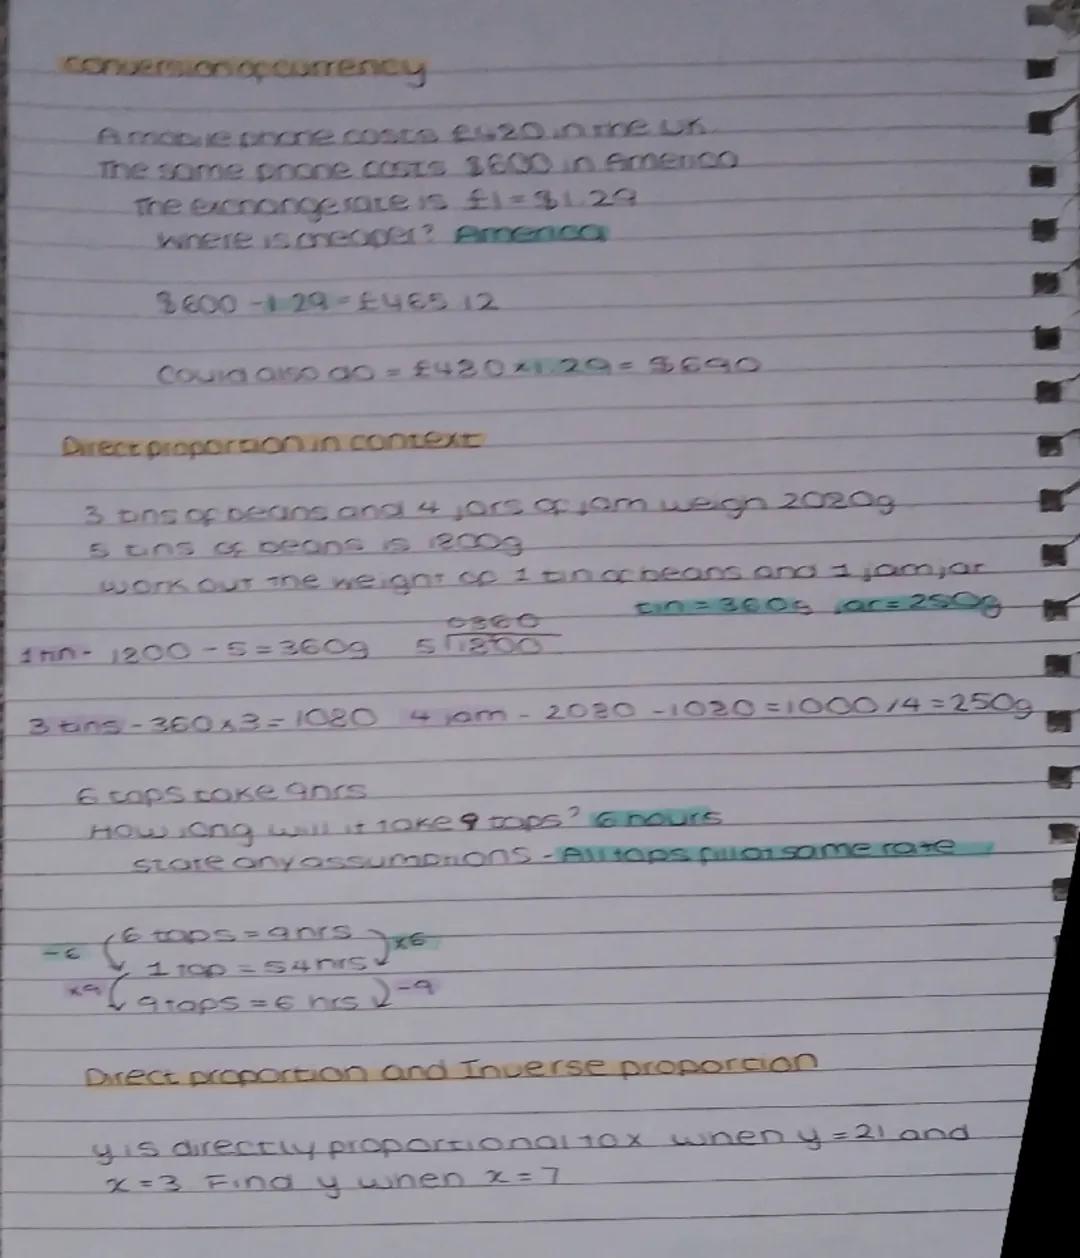 Conversion of currency
A mobile phone costs £480 in the UK.
The same phone costs $600 in America
The exchange rate is £1 = $1.29
Where is cheaper? America
$600 ÷ 1.29 = £465.12
Could also do = £480 × 1.29 =
Direct proportion in context
3 tins of beans and 4 jars of jam weigh 2080g
5 tins of beans is 1800g
work out the weight of 1 tin of beans and 1 jam jar
tin = 360g jar = 250g
0360
1 tin - 1800 ÷ 5 = 360g 5 1800
3 tins - 360 × 3 = 1080 4 jam - 2080 - 1080 = 1000 / 4 = 250g
6 taps take 9hrs
How long will it take 9 taps? 6 hours
state any assumptions - All taps fill at same rate
÷6 6 taps = 9hrs ×6
1 tap = 54hrs
×9 9 taps = 6 hrs ÷9
Direct proportion and Inverse proportion
y is directly proportional to x when y = 21 and
x = 3 Find y when x = 7